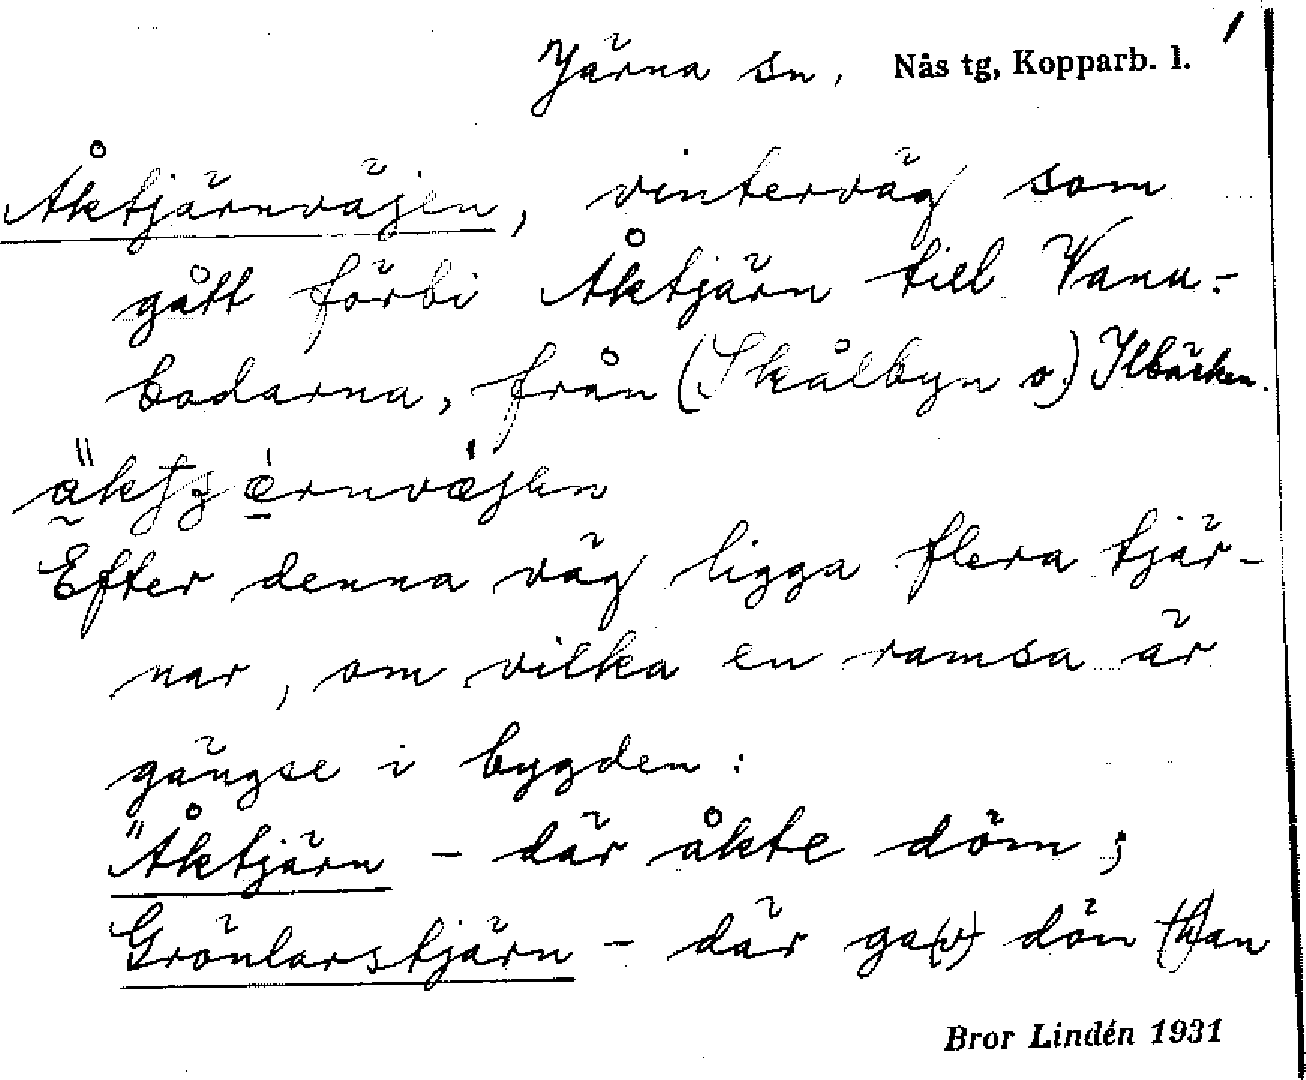 Järna sn. Nås tg, Kopparb. l. 1
Åktjärnväjen, vinterväg som
gått förbi Åktjärn till Vanu-
bodarna, från (Skålbyn o.) Ilbäcken.
Efter denna väg ligga flera tjär-
nar, om vilka en ramsa är
gängse i bygden:
"Åktjärn - där åkte döm;
Grönlarstjärn - där ga(v) dön (h)an
Bror Lindén 1931